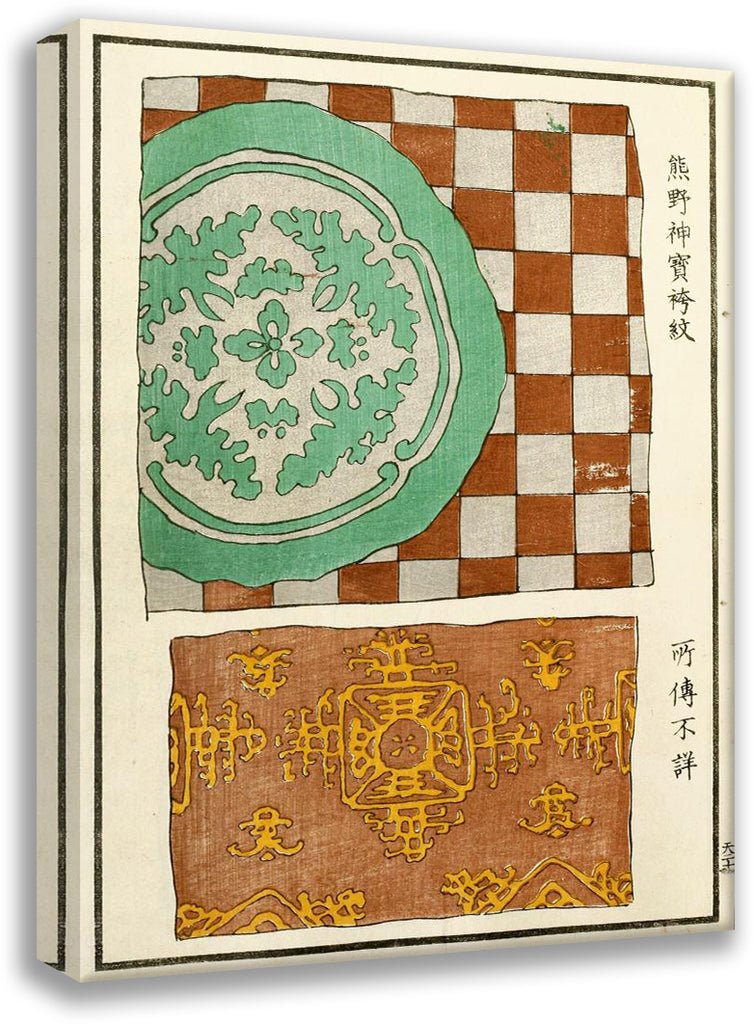 熊野神寶袴紋
所傳不詳
天十